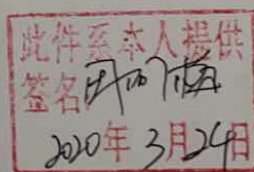 此件系本人提供
签名
2020年3月24日